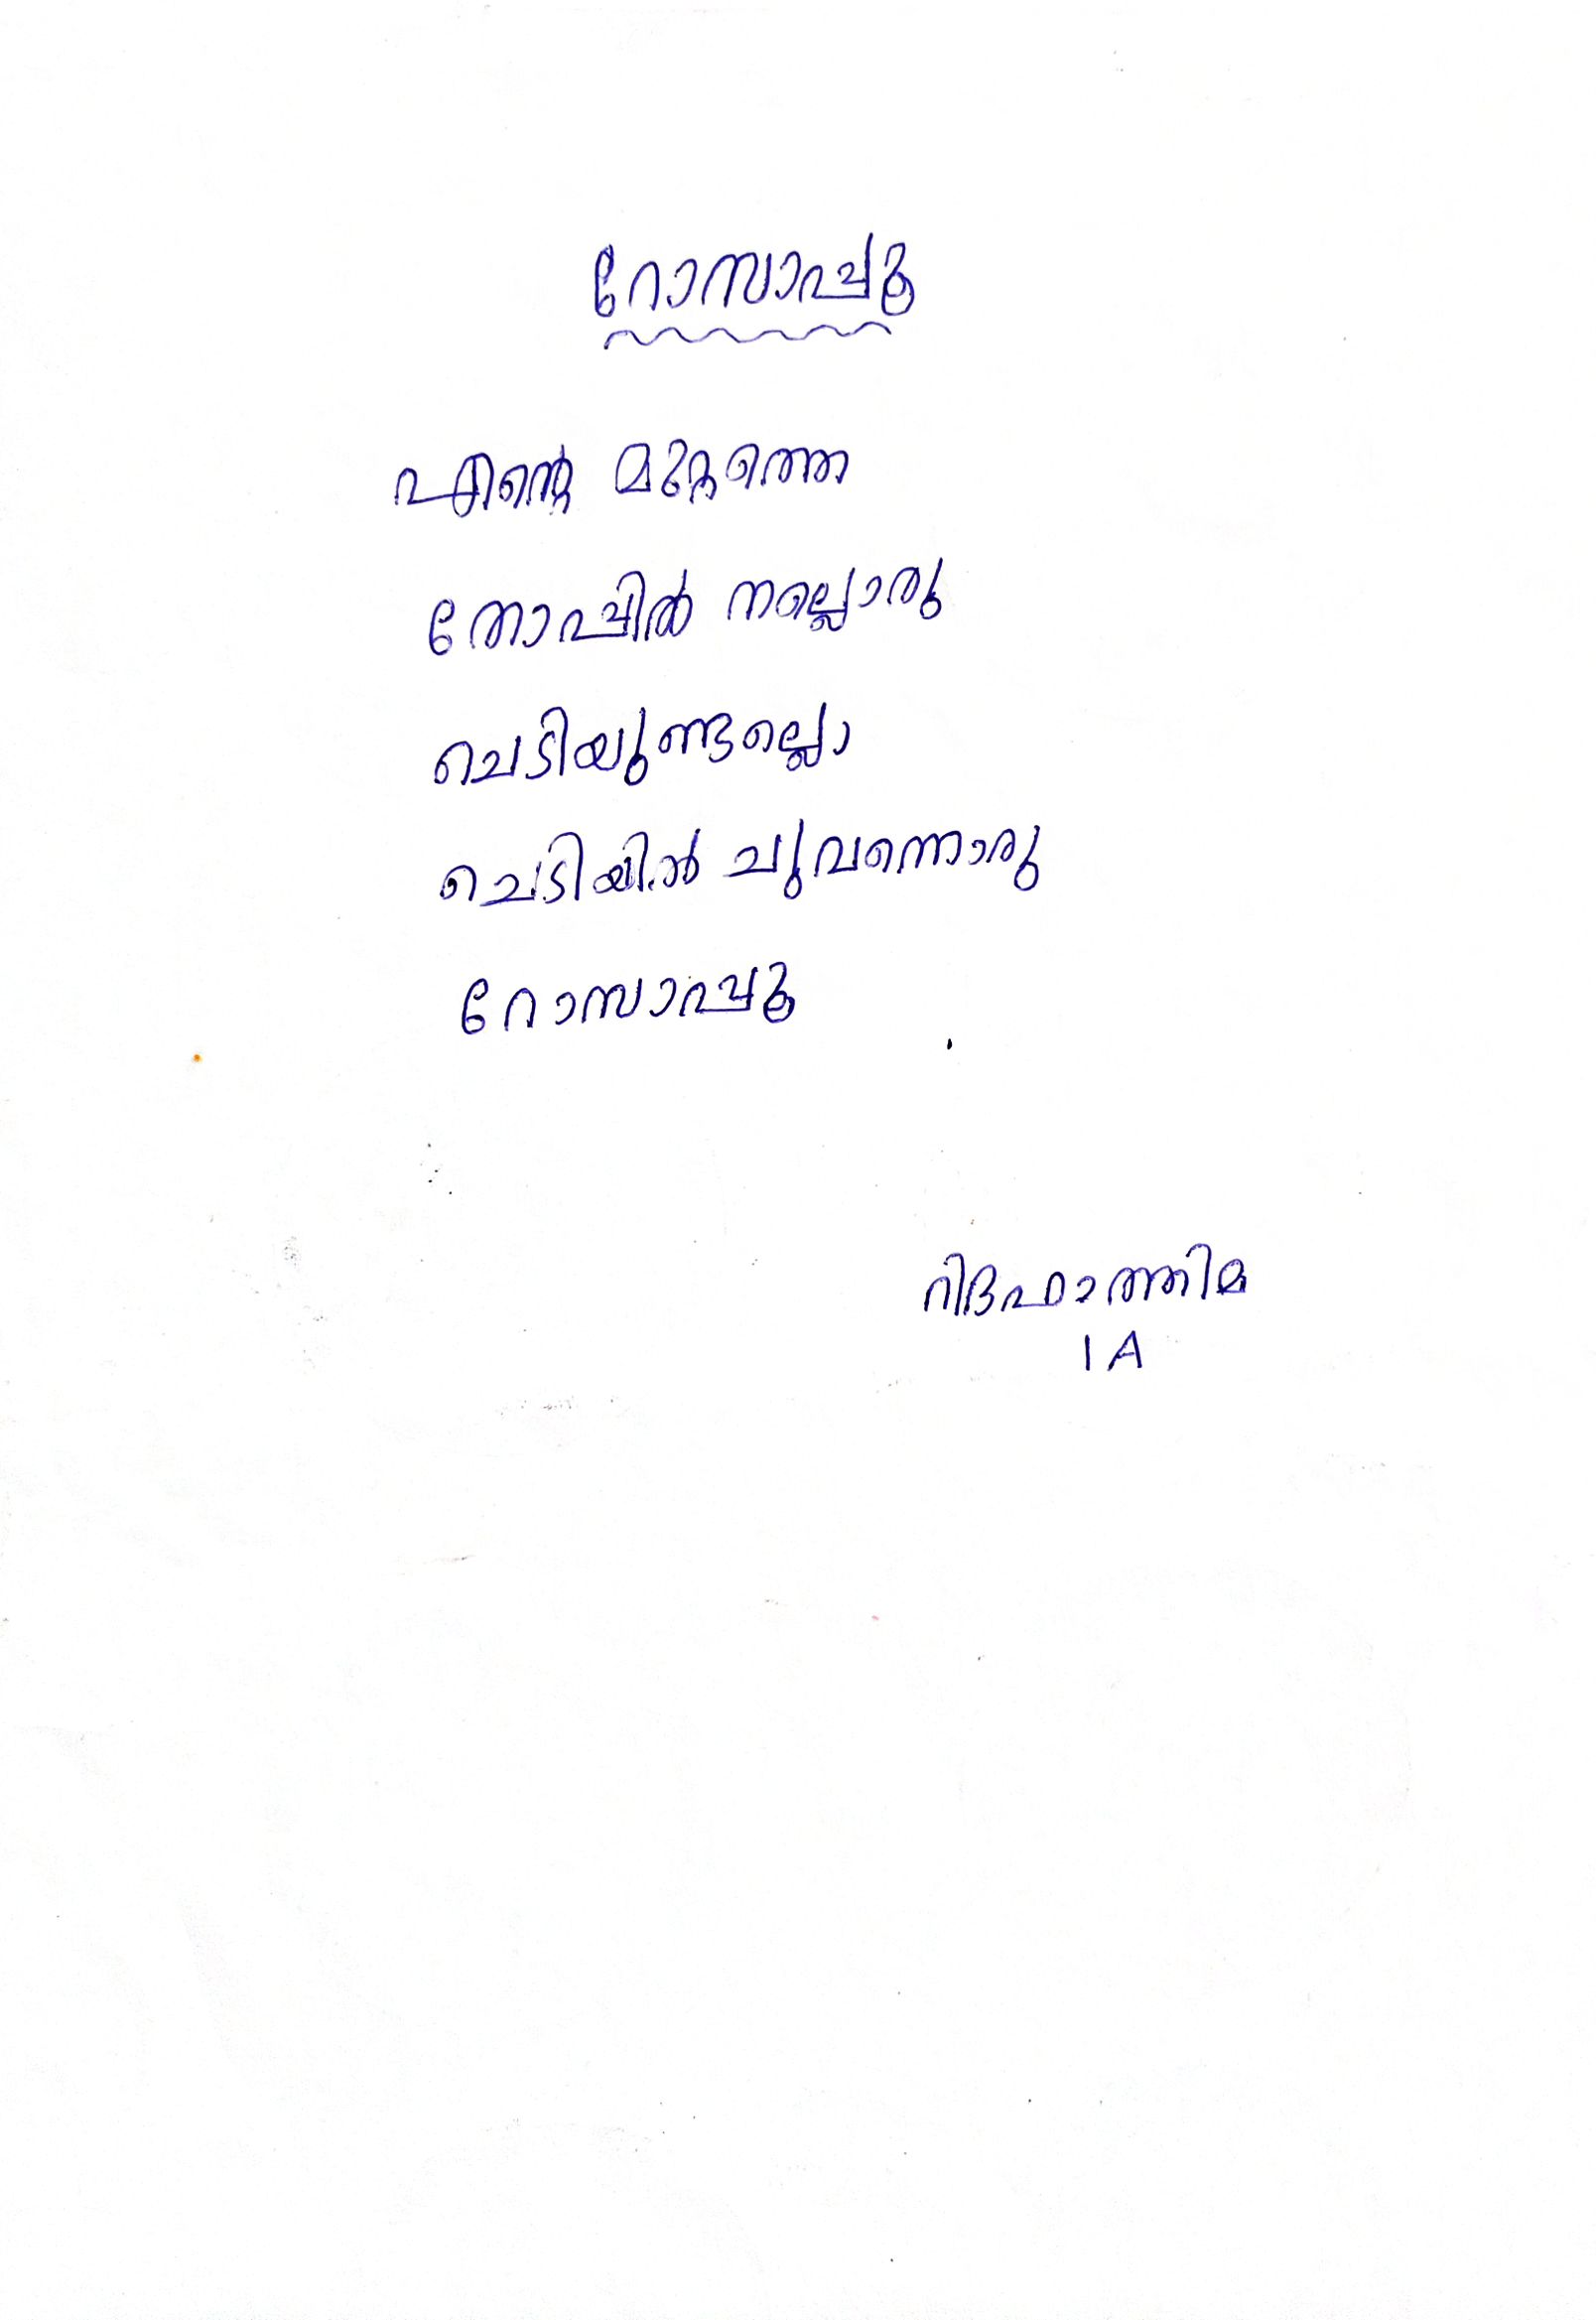 റോസാപ്പൂ
എന്റെ മുറ്റത്തെ
തോപ്പിൽ നല്ലൊരു
ചെടിയുണ്ടല്ലൊ
ചെടിയിൽ ചുവന്നൊരു
റോസാപ്പൂ
റിദഫാത്തിമ
1A